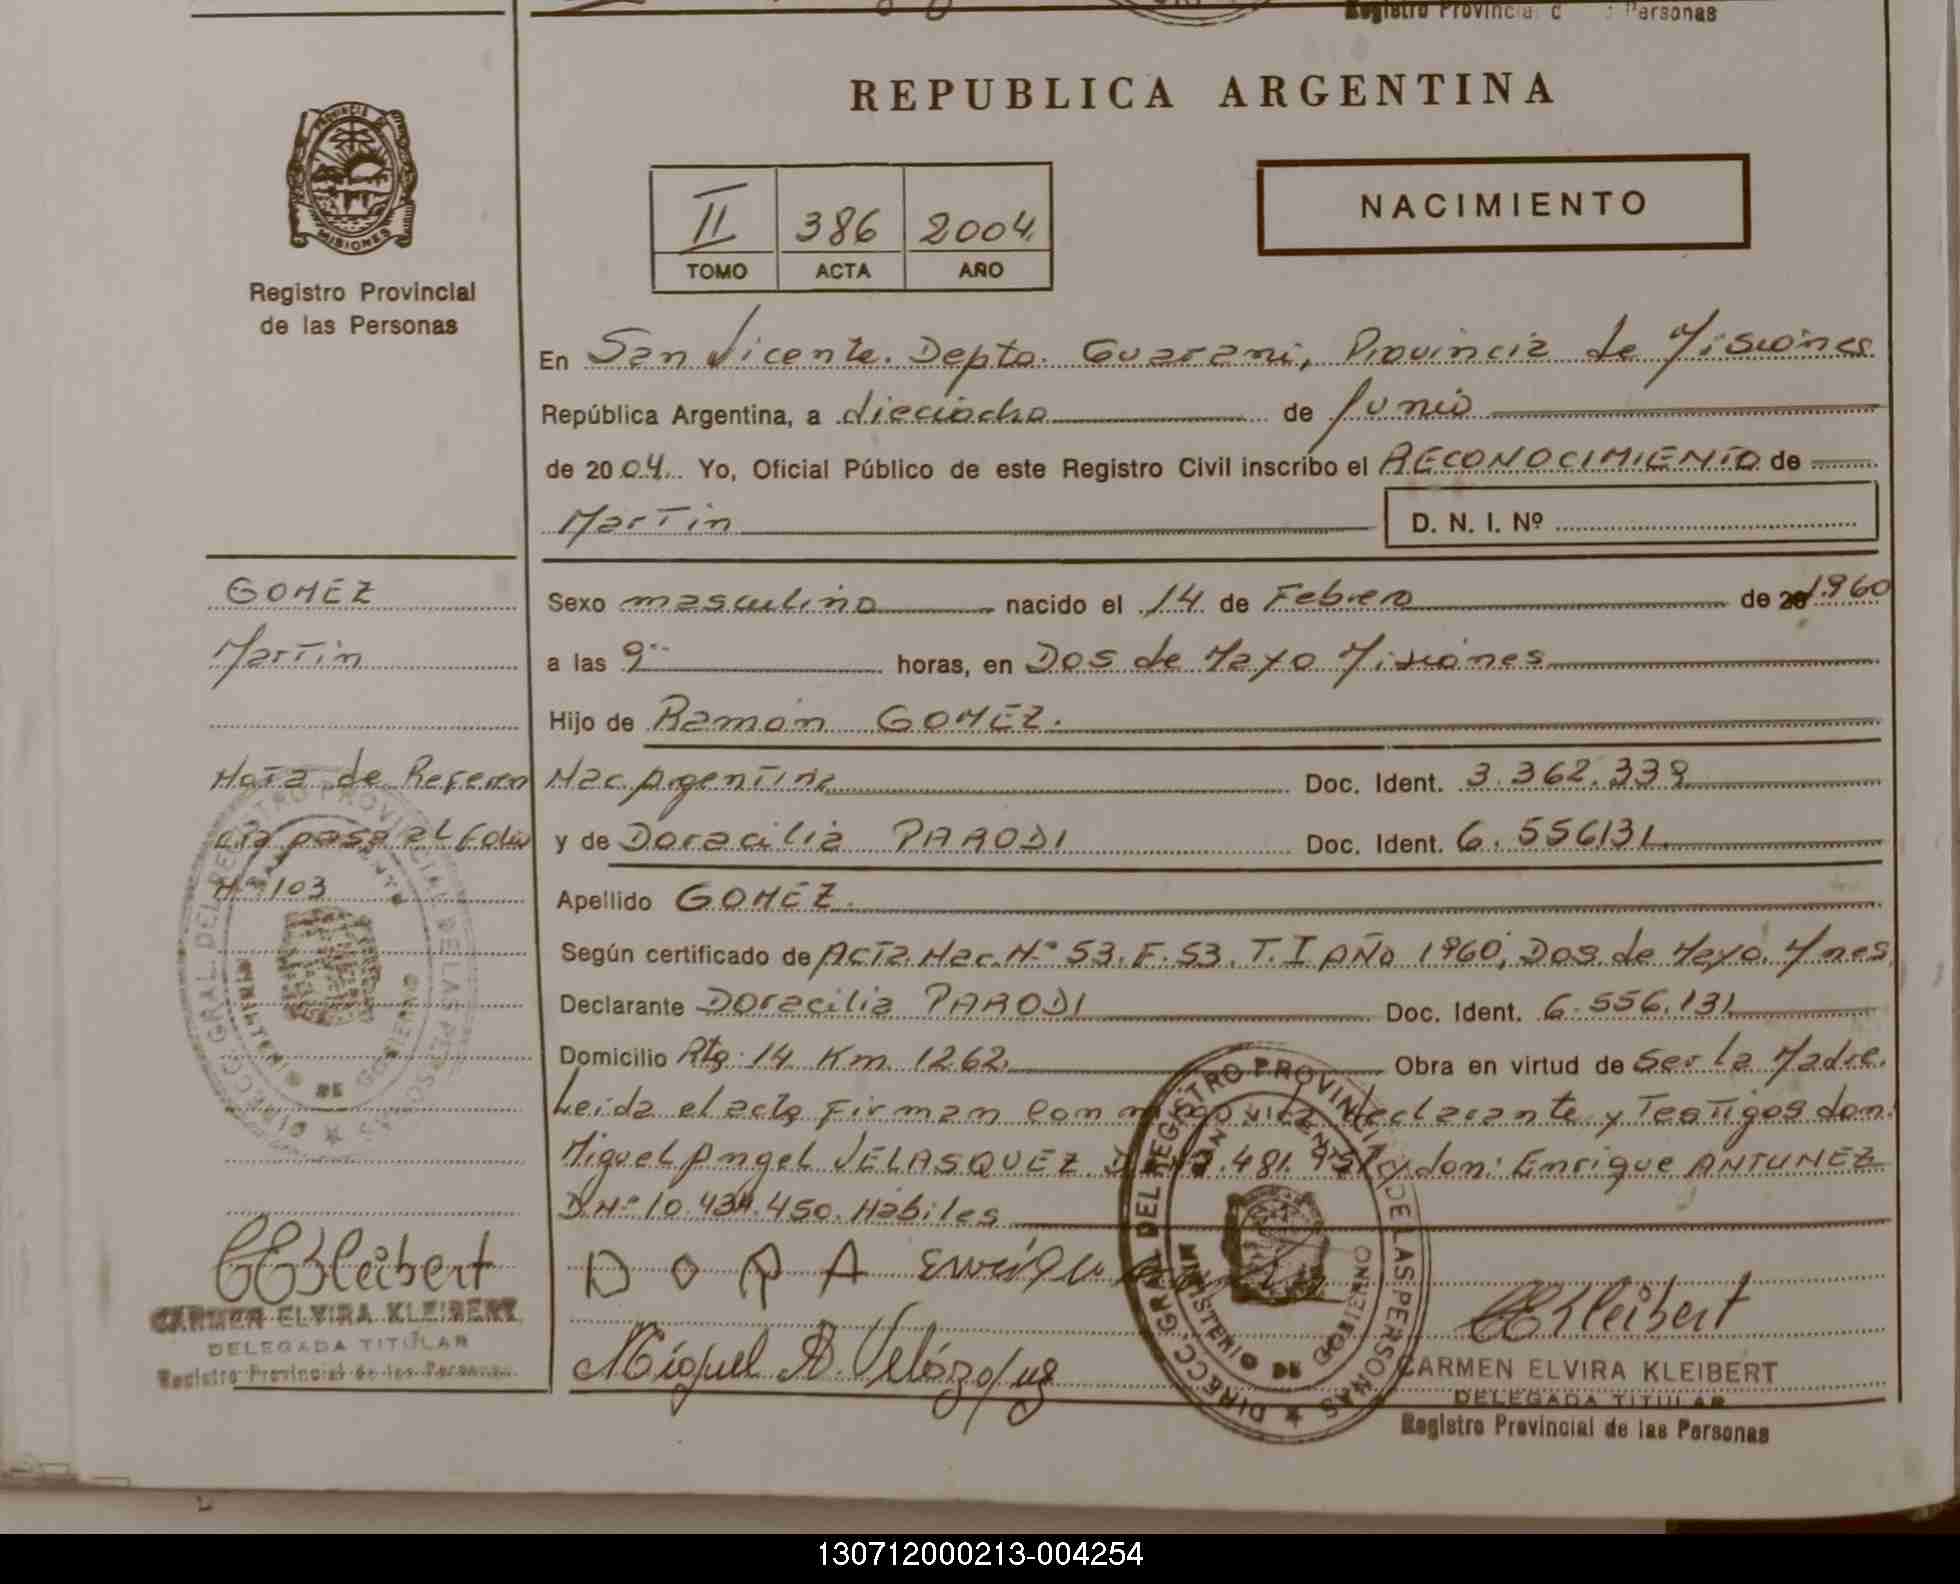 Registro Provincial de Personas
REPUBLICA ARGENTINA
PROVINCIA DE
MISIONES
Registro Provincial
de las Personas
II 386 2004
TOMO ACTA AÑO
NACIMIENTO
En San Vicente. Depto. Guarani, Provincia de Misiones
República Argentina, a dieciocho de Junio
de 2004 Yo, Oficial Público de este Registro Civil inscribo el RECONOCIMIENTO de
Martin D. N. I. Nº
GOMEZ
Martin
Nota de Referen
cia pasa al Folio
Nº 103
Sexo masculino nacido el 14 de Febrero de 20 1960
a las 9 horas, en Dos de Mayo Misiones
Hijo de Ramón GOMEZ.
Nac. Argentina Doc. Ident. 3.362.339
y de Doracilia PARODI Doc. Ident. 6.556131
Apellido GOMEZ.
Según certificado de Acta Nac. Nº 53. F. 53. T. I AÑO 1960, Dos de Mayo. Mnes
Declarante Doracilia PARODI Doc. Ident. 6.556.131
Domicilio Rta. 14 Km 1262. Obra en virtud de Ser la Madre.
Leida el acta Firman Conmigo la declarante y Testigos don:
Miguel Angel VELASQUEZ .481. y don: Enrique ANTUNEZ
D.Nº 10.434.450. Habiles
DORA Enrique
Miguel A. Velázquez
CEKleibert
CARMEN ELVIRA KLEIBERT
DELEGADA TITULAR
Registro Provincial de las Personas
CEKleibert
CARMEN ELVIRA KLEIBERT
DELEGADA TITULAR
Registro Provincial de las Personas
DIRECC. GRAL. DEL REGISTRO PROVINCIAL DE LAS PERSONAS
SAN VICENTE
MINISTERIO DE GOBIERNO
DIRECC. GRAL. DEL REGISTRO PROVINCIAL DE LAS PERSONAS
SAN VICENTE
MINISTERIO DE GOBIERNO
130712000213-004254